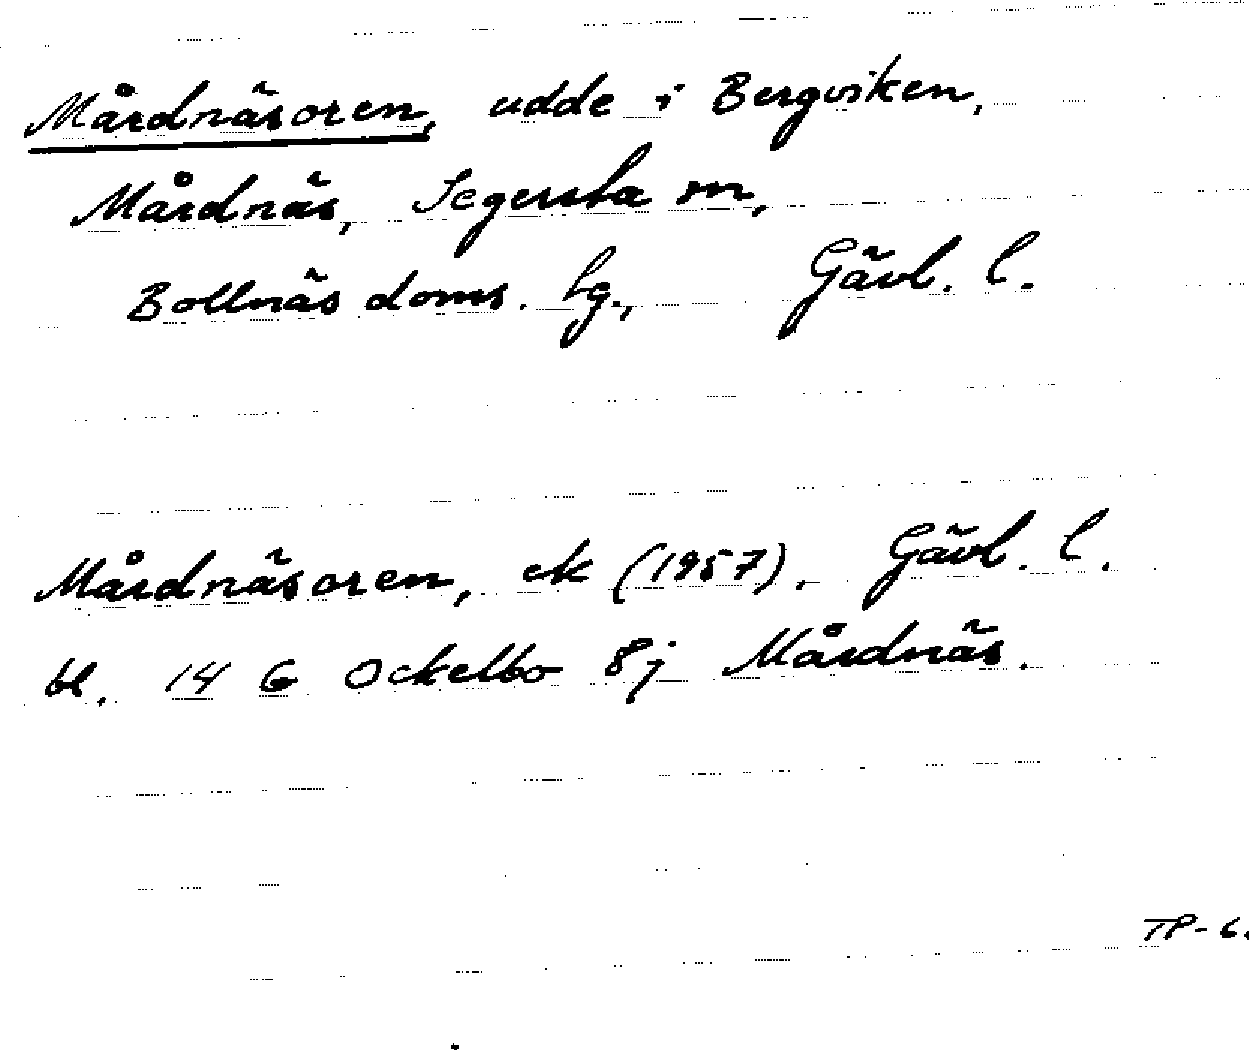 Mårdnäsoren, udde i Bergviken,
Mårdnäs, Segersta sn,
Bollnäs doms. tg., Gävl. l.
Mårdnäsoren, ek (1957). Gävl. l.
bl. 14 G Ockelbo 8j Mårdnäs.
TP-6.